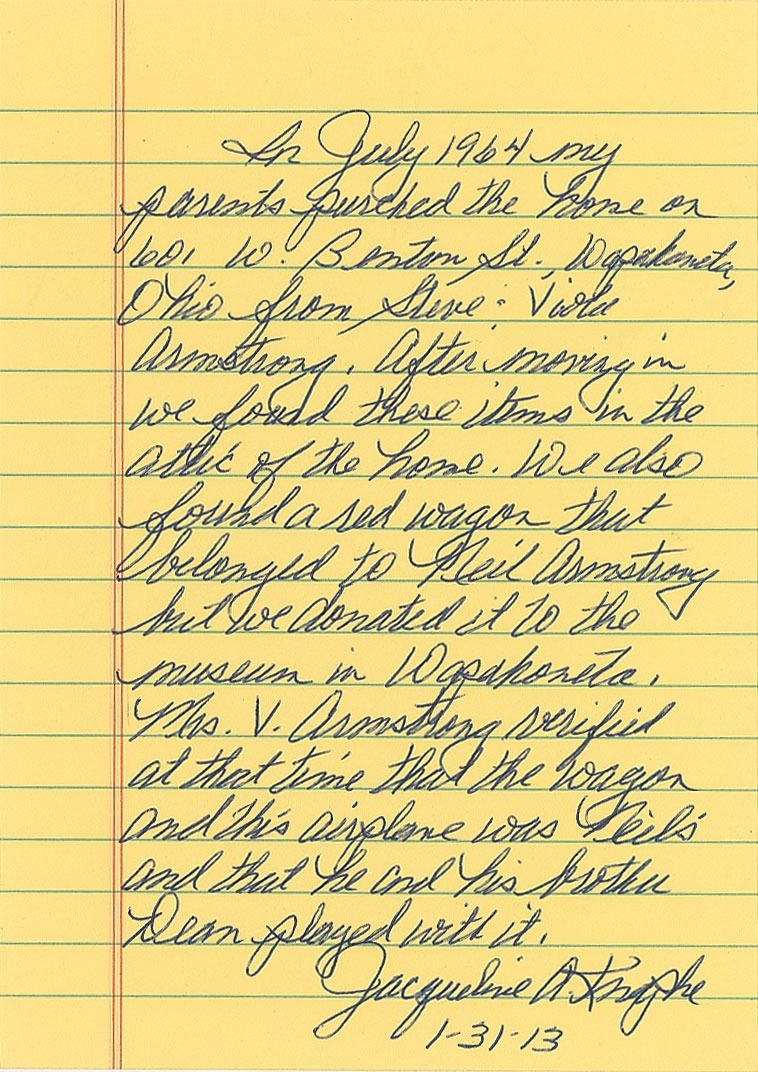 In July 1964 my
parents purched the home on
601 W. Benton St., Wapakoneta,
Ohio from Steve & Viola
Armstrong. After moving in
we found these items in the
attic of the home. We also
found a red wagon that
belonged to Neil Armstrong
but we donated it to the
museum in Wapakoneta.
Mrs. V. Armstrong verified
at that time that the wagon
and this airplane was Neil's
and that he and his brother
Dean played with it.
Jacqueline A.
1-31-13